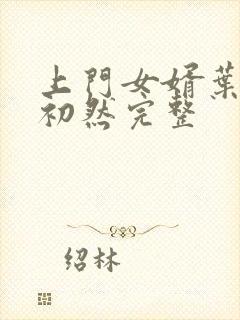 上門女婿葉
初然完整
绍林